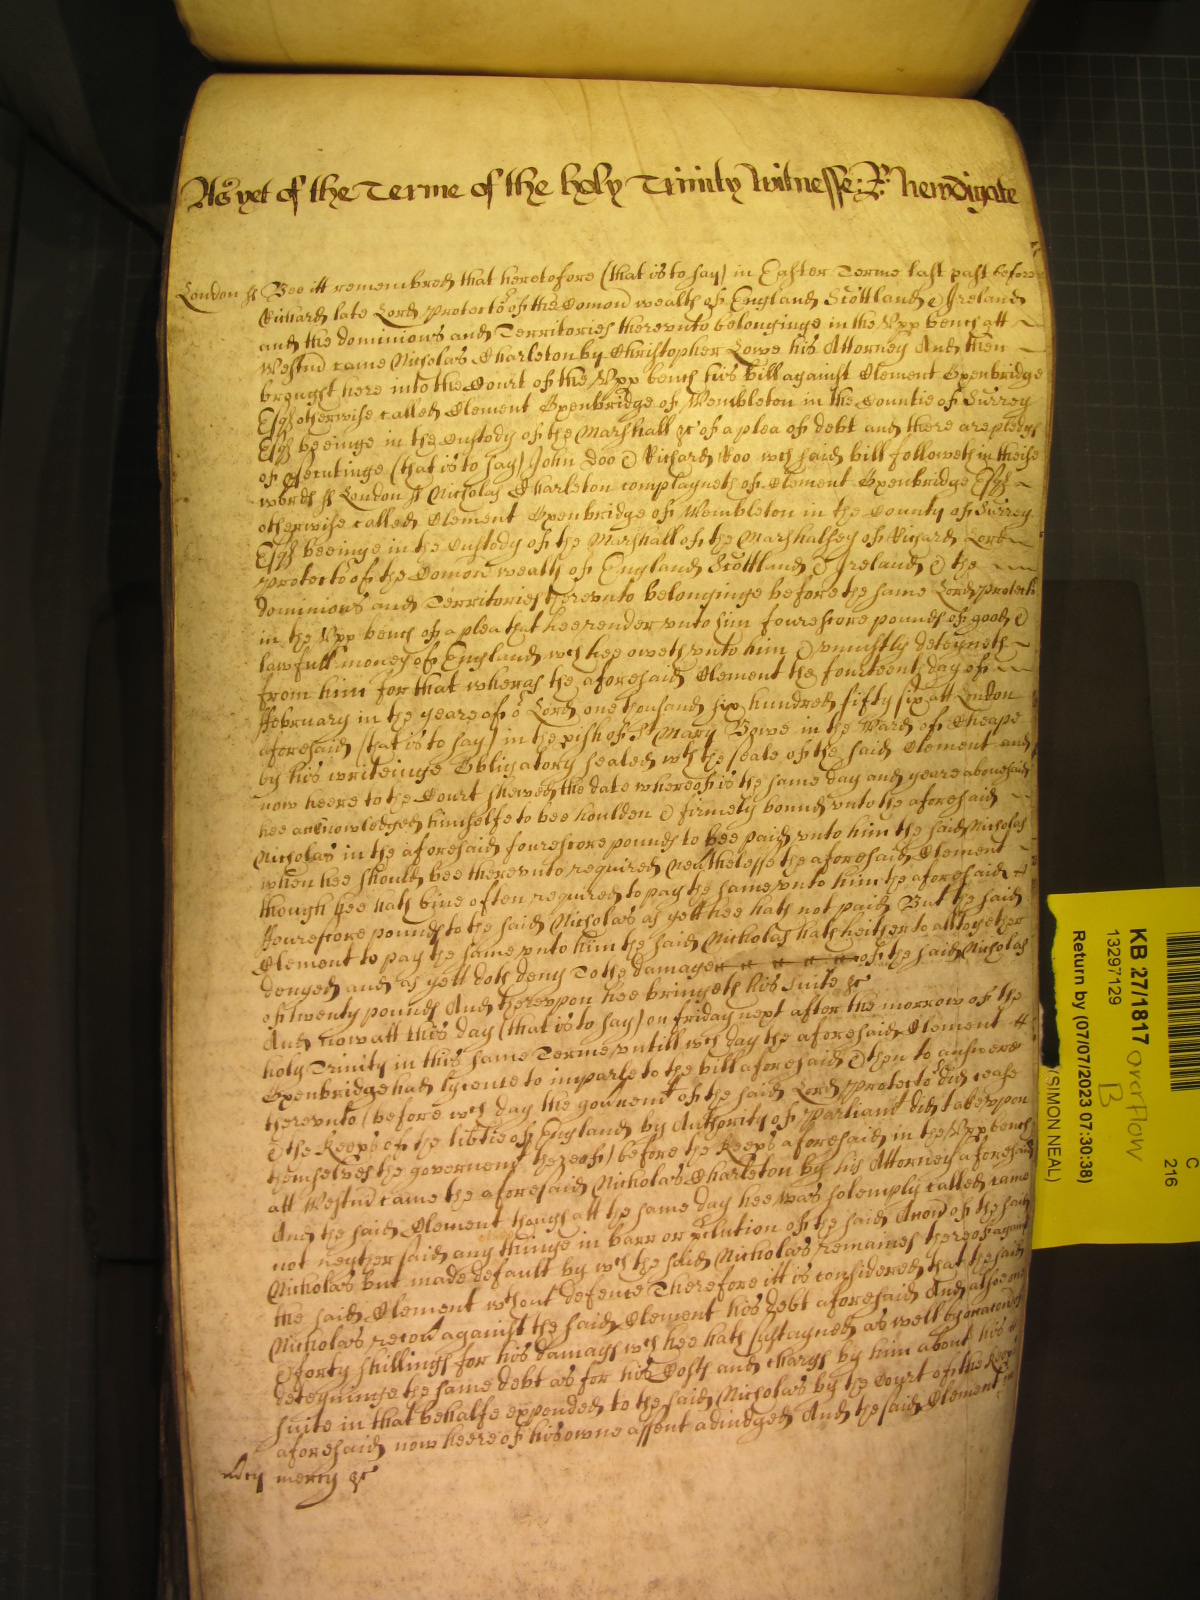 As yet of the Terme of the holy Trinity Witnesse: R: Newdigate
London ss Bee itt remembred that heretofore (that is to say) in Easter Terme last past before
Richard late Lord Protector of the Comon wealth of England Scottland & Ireland
and the dominions and Territories therevnto belonginge in the Vpp bench att
Westmr came Nicholas Charleton by Christopher Lowe his Attorney And then
brought here into the Court of the Vpp bench his bill against Clement Oxenbridge
Esqr otherwise called Clement Oxenbridge of Wembleton in the Countie of Surrey
Esqr beeinge in the Custody of the Marshall &c of a plea of debt and there are pledges
of psecutinge (that is to say) John Doo & Richard Roo wch said bill followeth in theise
words ss London ss Nicholas Charleton complayneth of Clement Oxenbridge Esqr
otherwise called Clement Oxenbridge of Wembleton in the County of Surrey
Esqr beeinge in the Custody of the Marshall of the Marshalsey of Richard Lord
Protector of the Comon wealth of England Scottland & Ireland & the
dominions and Territories therevnto belonginge before the same Lord Protector
in the Vpp bench of a plea that hee render vnto him fourescore pounds of good &
lawfull money of England wch hee oweth vnto him & vniustly deteyneth
from him for that wheras the aforesaid Clement the fourteenth day of
ffebruary in the yeare of or Lord one thousand six hundred fifty six att London
aforesaid (that is to say) in the pish of St Mary Bowe in the Ward of Cheape
by his writeinge Obligatory sealed wth the seale of the said Clement and
now heere to the Court shewed the date whereof is the same day and yeare abouesaid
hee acknowledged himselfe to bee houlden & firmely bound vnto the aforesaid
Nicholas in the aforesaid fourescore pounds to bee paid vnto him the said Nicholas
when hee should bee therevnto required Neuthelesse the aforesaid Clement
though hee hath bine often required to pay the same vnto him the aforesaid
ffourescore pounds to the said Nicholas as yett hee hath not paid But the said
Clement to pay the same vnto him the said Nicholas hath hitherto alltogether
denyed and as yett doth deny To the damage of the said Nicholas
of twenty pounds And therevpon hee bringeth his suite &c
And now att this day (that is to say) on friday next after the morrow of the
holy Trinity in this same Terme vntill wch day the aforesaid Clement
Oxenbridge had lycence to imparle to the bill aforesaid & then to answere
therevnto (before wch day the gouernemt of the said Lord Protector did cease
& the Keeps of the libtie of England by Authority of Parliamt did take vpon
themselves the governemt thereof) before the Keeps aforesaid in the Vpp bench
att Westmr came the aforesaid Nicholas Charleton by his Attorney aforesaid
And the said Clement though att the same day hee was solemply called came
not neyther said any thinge in barr or pclution of the said Accon of the said
Nicholas but made default by wch the said Nicholas remaines thereof against
the said Clement wthout defence Therefore itt is considered that the said
Nicholas recou against the said Clement his debt aforesaid And alsoe
& forty shillings for his damags wch hee hath sustayned as well by occasion of
deteyninge the same debt as for his Costs and chargs by him about his
suite in that behalfe expended to the said Nicholas by the Court of the Keeps
aforesaid now heere of his owne assent adiudged And the said Clement in
mercy &c
KB 27/1817 overflow
B
13297129
Return by (07/07/2023 07:30:38)
(SIMON NEAL)
C
216